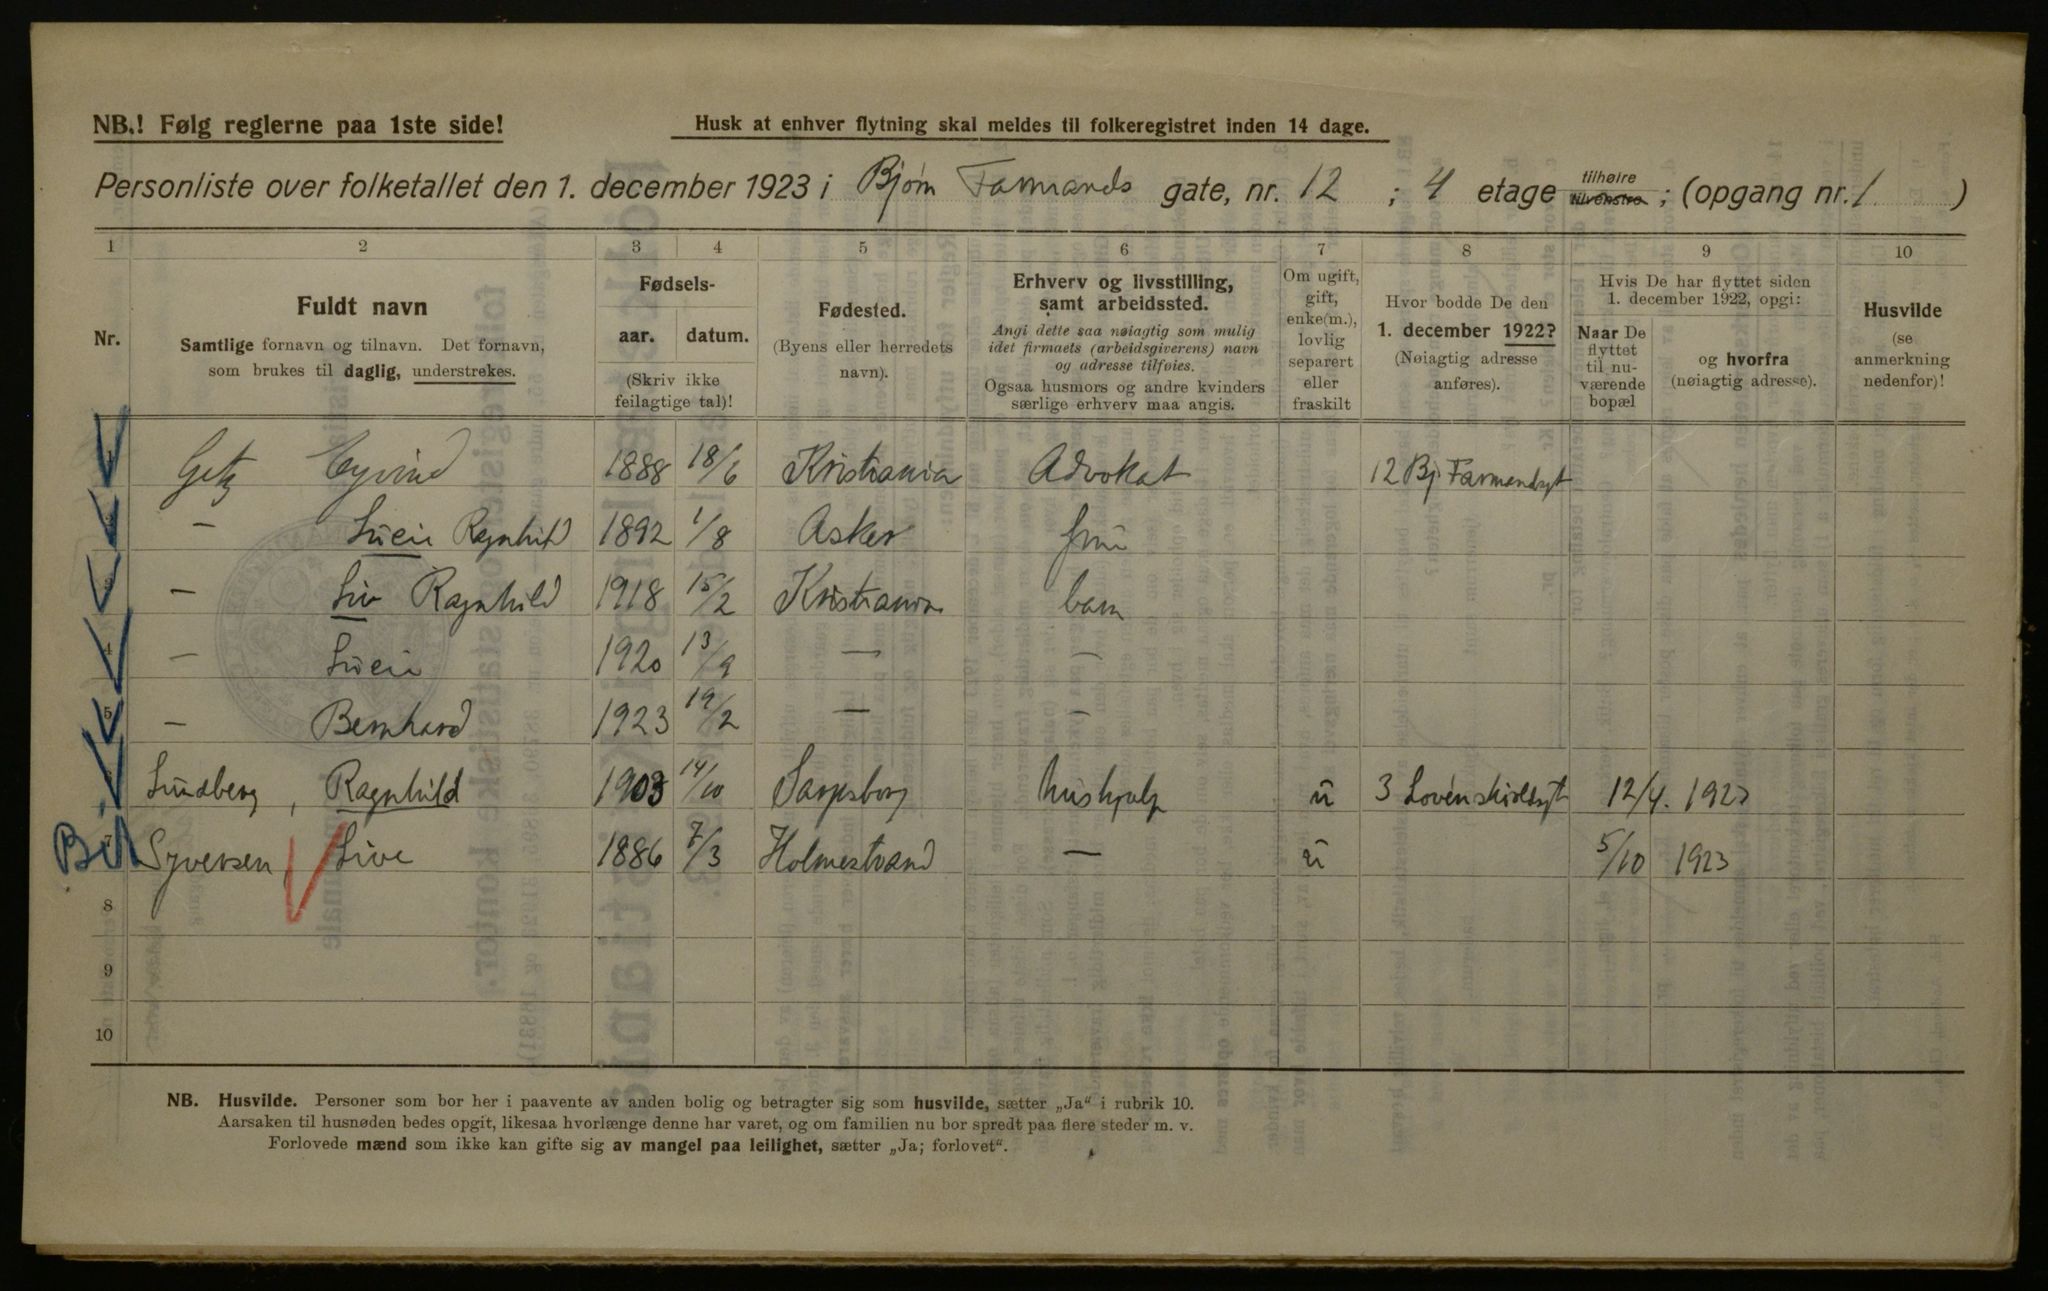 NB.! Følg reglerne paa 1ste side!
Husk at enhver flytning skal meldes til folkeregistret inden 14 dage.
Personliste over folketallet den 1. december 1923 i Bjørn Farmands gate, nr. 12 ; 4 etage tilhøire tilvenstre ; (opgang nr. 1 )
1 2 3 4 5 6 7 8 9 10
Nr.
Fuldt navn
Samtlige fornavn og tilnavn. Det fornavn,
som brukes til daglig, understrekes.
Fødsels-
aar. datum.
(Skriv ikke
feilagtige tal)!
Fødested.
(Byens eller herredets
navn).
Erhverv og livsstilling,
samt arbeidssted.
Angi dette saa nøiagtig som mulig
idet firmaets (arbeidsgiverens) navn
og adresse tilføies.
Ogsaa husmors og andre kvinders
særlige erhverv maa angis.
Om ugift,
gift,
enke(m.),
lovlig
separert
eller
fraskilt
Hvor bodde De den
1. december 1922?
(Nøiagtig adresse
anføres).
Hvis De har flyttet siden
1. december 1922, opgi:
Naar De
flyttet
til nu-
værende
bopæl
og hvorfra
(nøiagtig adresse).
Husvilde
(se
anmerkning
nedenfor)!
Getz Eyvind 1888 18/6 Kristiania Advokat 12 Bj. Farmandsgt
— Lucie Ragnhild 1892 1/8 Asker frue
3 — Liv Ragnhild 1918 15/2 Kristiania barn
4 — Lucie 1920 13/9 — —
5 — Bernhard 1923 19/2 — —
Lundberg, Ragnhild 1903 14/10 Sarpsborg hushjælp u 3 Løvenskioldsgt 12/4. 1923
7 Syversen, Live 1886 7/3 Holmestrand — u 5/10 1923
8
9
10
NB. Husvilde. Personer som bor her i paavente av anden bolig og betragter sig som husvilde, sætter „Ja“ i rubrik 10.
Aarsaken til husnøden bedes opgit, likesaa hvorlænge denne har varet, og om familien nu bor spredt paa flere steder m. v.
Forlovede mænd som ikke kan gifte sig av mangel paa leilighet, sætter „Ja; forlovet“.